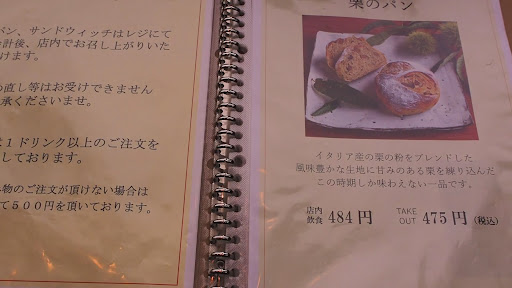 パン、サンドウィッチはレジにて
計後、店内でお召し上がりいた
けます。
直し等はお受けできません
承くださいませ。
は１ドリンク以上のご注文を
しております。
物のご注文が頂けない場合は
て５００円を頂いております。
栗のパン
イタリア産の栗の粉をブレンドした
風味豊かな生地に甘みのある栗を練り込んだ
この時期しか味わえない一品です。
店内飲食 484円 TAKE OUT 475円 (税込)